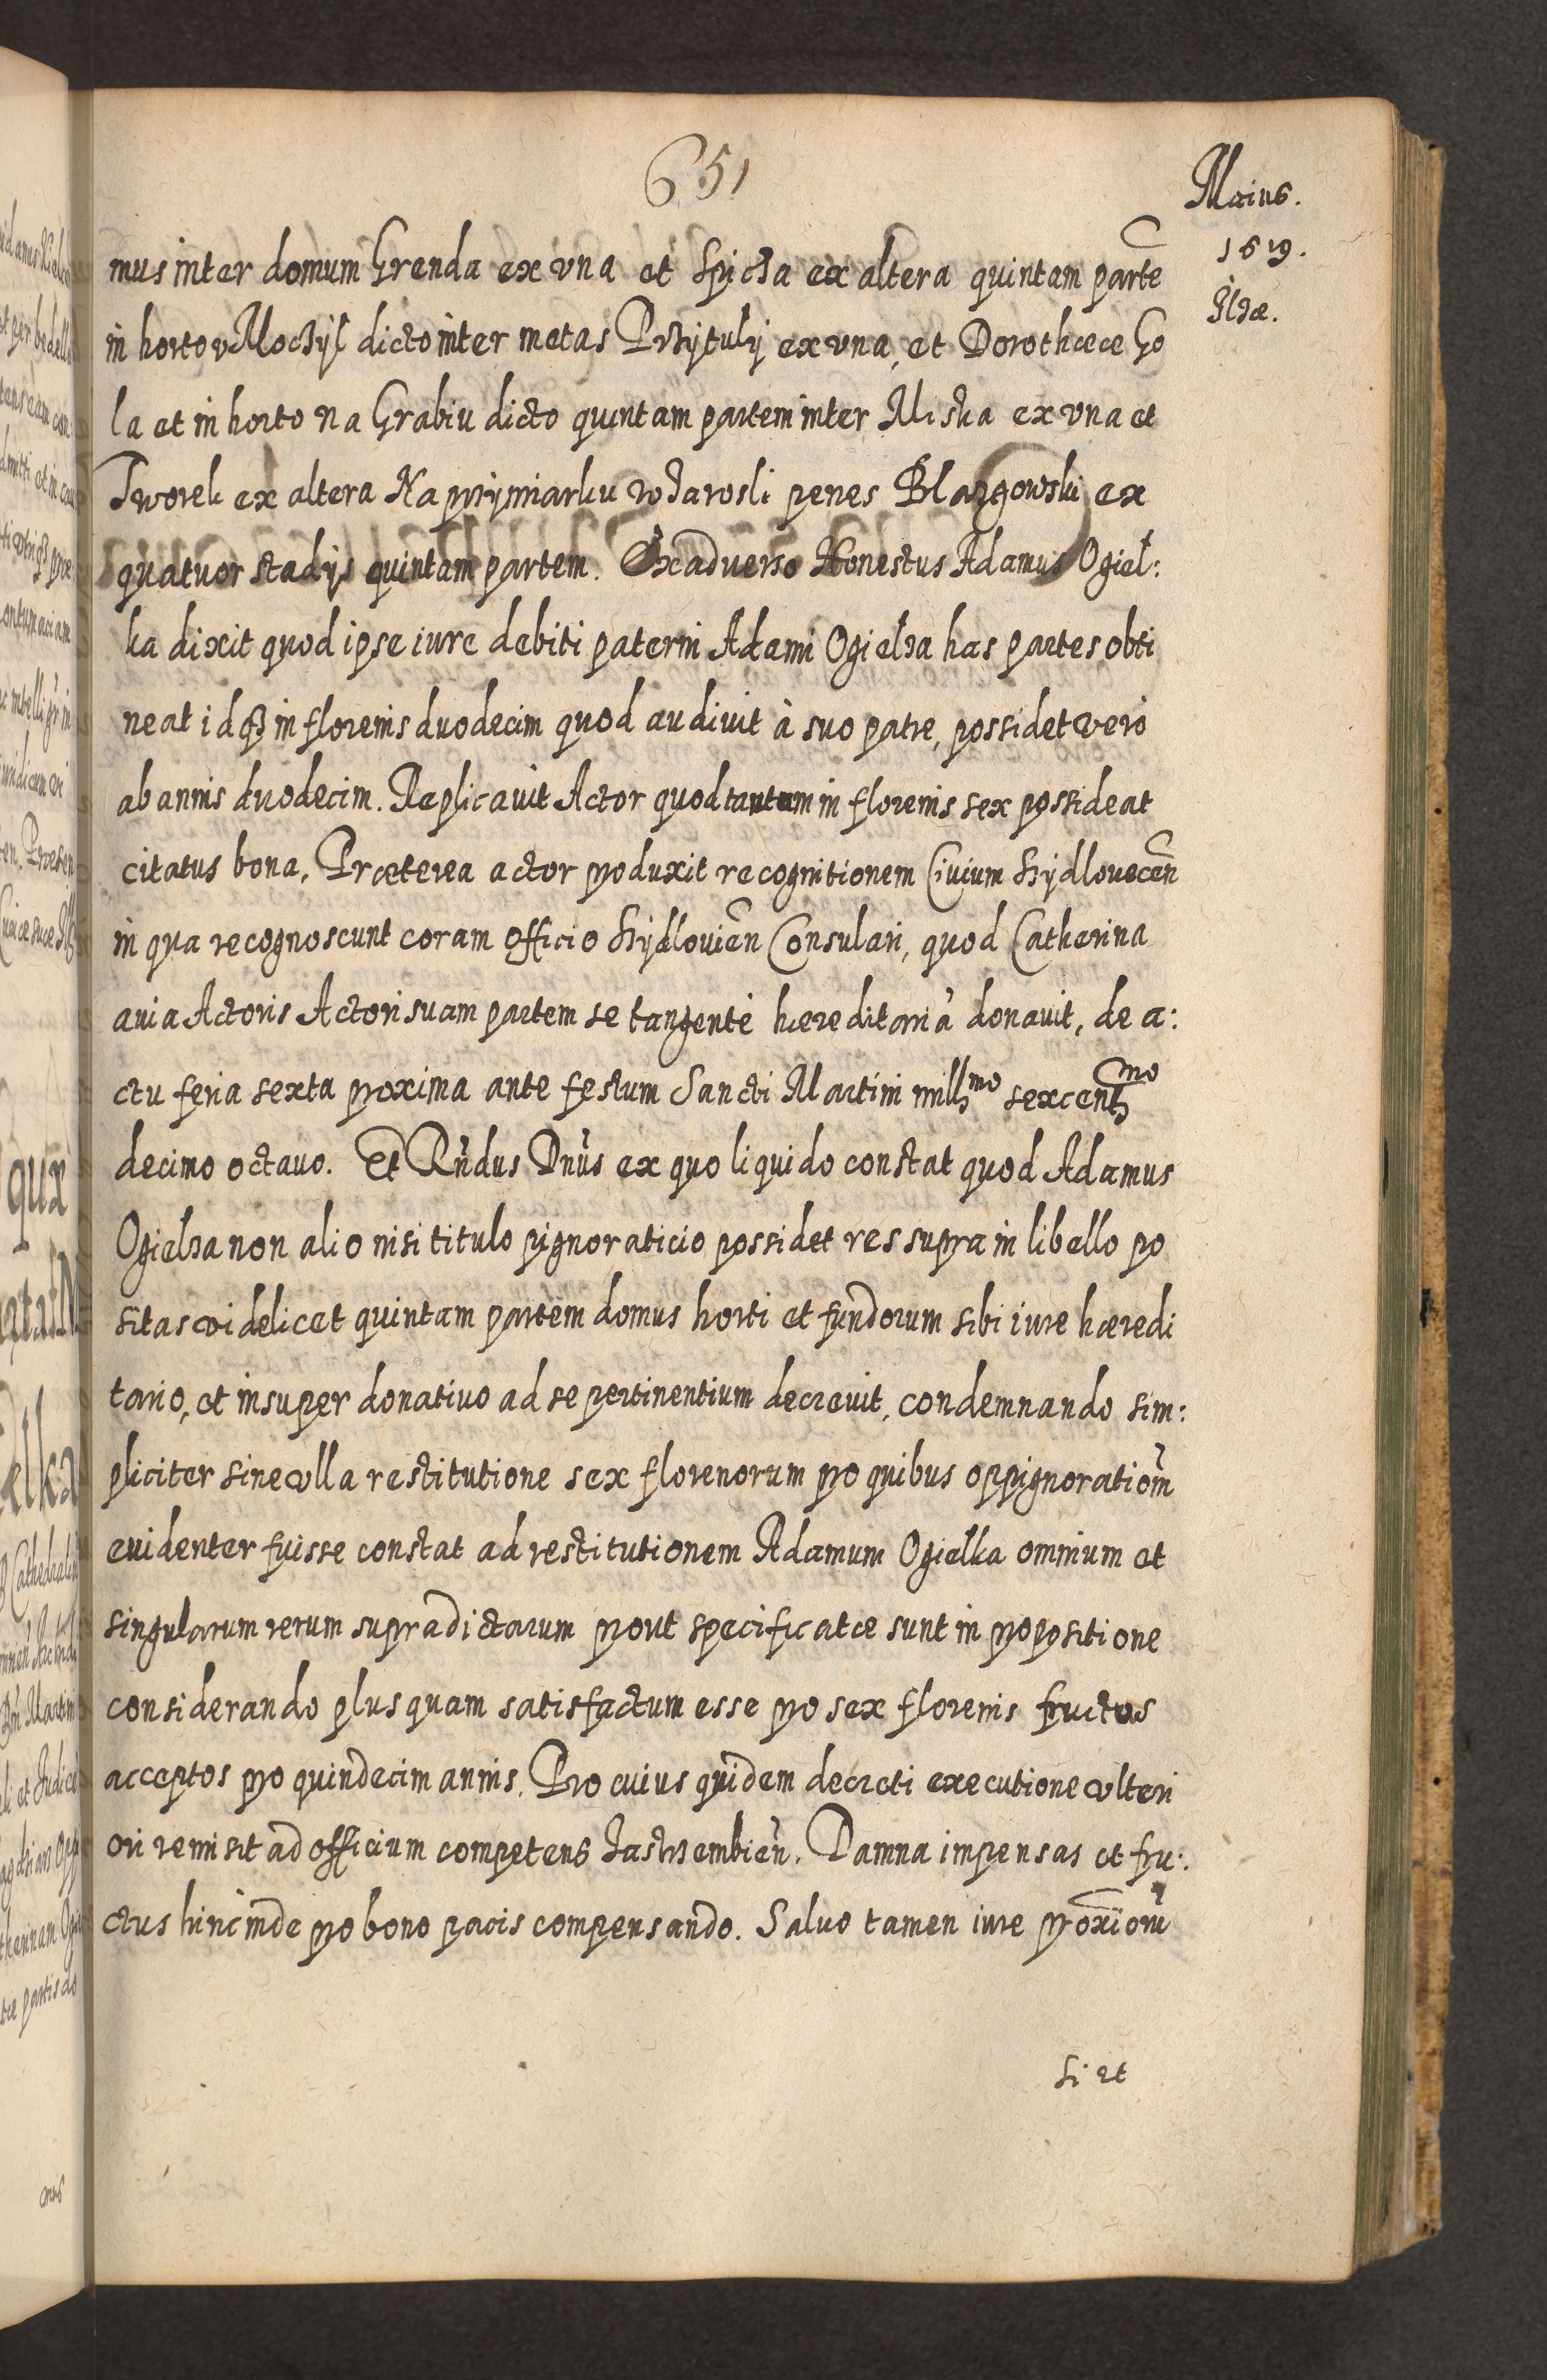 651
Maius.
1619.
Ilzæ.
mus inter domum Grenda ex vna et Spicza ex altera quintam partē
in horto v Moczyl dicto inter metas Przytuly ex vna, et Dorothææ Go
la et in horto na Grabiu dicto quintam partem inter Miska ex vna et
Tworek ex altera Na przymiarku w Jarosli penes Blazgowski ex
quatuor stadijs quintam partem. Ex aduerso Honestus Adamus Ogiel:
ka dixit quod ipse iure debiti paterni Adami Ogielka has partes obti
neat idqȝ in florenis duodecim quod audiuit à suo patre, possidet vero
ab annis duodecim. Replicauit Actor quod tantum in florenis sex possideat
citatus bona, Præterea actor produxit recognitionem Ciuium Szydlouecēn
in qua recognoscunt coram officio Szydlouiēn Consulari, quod Catherina
auia Actoris Actori suam partem se tangentē hæreditariā donauit, de a:
ctu feria sexta proxima ante festum Sancti Martini millmo sexcentmo
decimo octauo. Et Rñdus Dnũs ex quo liquido constat quod Adamus
Ogielka non alio nisi titulo pignoraticio possidet res supra in libello po
sitas videlicet quintam partem domus horti et fundorum sibi iure hæredi
tario, et insuper donatiuo ad se pertinentium decreuit, condemnando sim:
pliciter sine vlla restitutione sex florenorum pro quibus oppignorationẽ
euidenter fuisse constat ad restitutionem Adamum Ogielka omnium et
singularum rerum supradictarum prout specificatæ sunt in propositione
considerando plus quam satisfactum esse pro sex florenis fructus
acceptos pro quindecim annis. Pro cuius quidem decreti executione vlteri
ori remisit ad officium competens Jastrzembien̄. Damna impensas et fru:
ctus hinc inde pro bono pacis compensando. Saluo tamen iure proxīorũ
si et